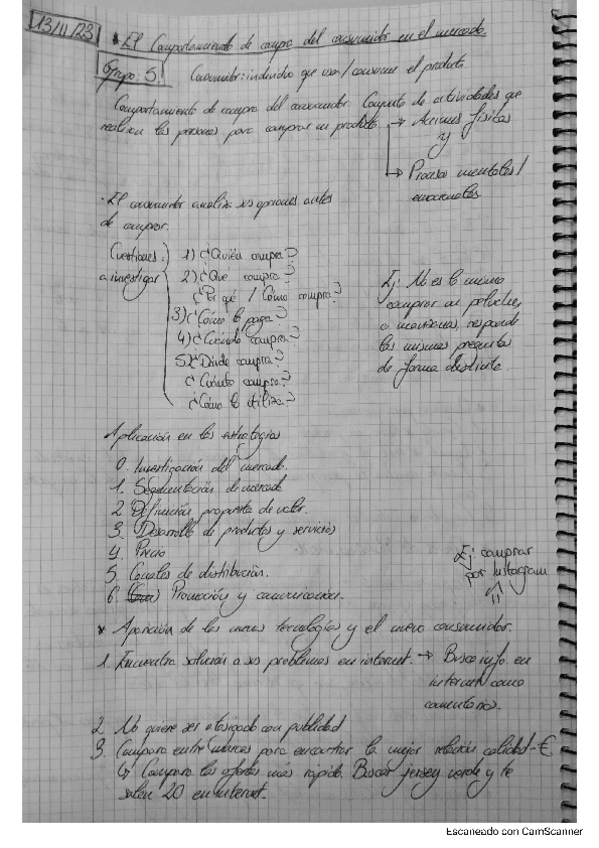 13/11/23
* El Comportamiento de compra del consumidor en el mercado.
Grupo: 5. Consumidor: individuo que usa/consume el producto
Comportamiento de compra del consumidor Conjunto de actividades que
realizan las personas para comprar un producto → Acciones físicas
y
→ Procesos mentales/
emocionales
· El consumidor analiza sus opciones antes
de comprar.
Cuestiones
a investigar
1) ¿Quién compra?
2) ¿Qué compra?
¿Por qué / Cómo compra?
3) ¿Cómo lo paga?
4) ¿Cuándo compra?
5) ¿Dónde compra?
¿Cuánto compra?
¿Cómo lo utiliza?
Ej: No es lo mismo
comprar un
o manzanas, responde
las mismas preguntas
de forma distinta.
Aplicación en las estrategias
0. Investigación del mercado.
1. Segmentación de mercado
2. Definición propuesta de valor.
3. Desarrollo de productos y servicios
4. Precio
5. Canales de distribución.
6. Promoción y comunicación.
Ej: comprar
por Instagram
* Aparición de las nuevas tecnologías y el nuevo consumidor.
1. Encuentra solución a sus problemas en internet. → Busca info en
internet como
comentarios.
2. No quiere ser atosigado con publidad
3. Compara entre marcas para encontrar la mejor relación calidad-€
↳ Compara las ofertas más rápido. Buscar jersey verde y te
salen 20 en internet.
Escaneado con CamScanner